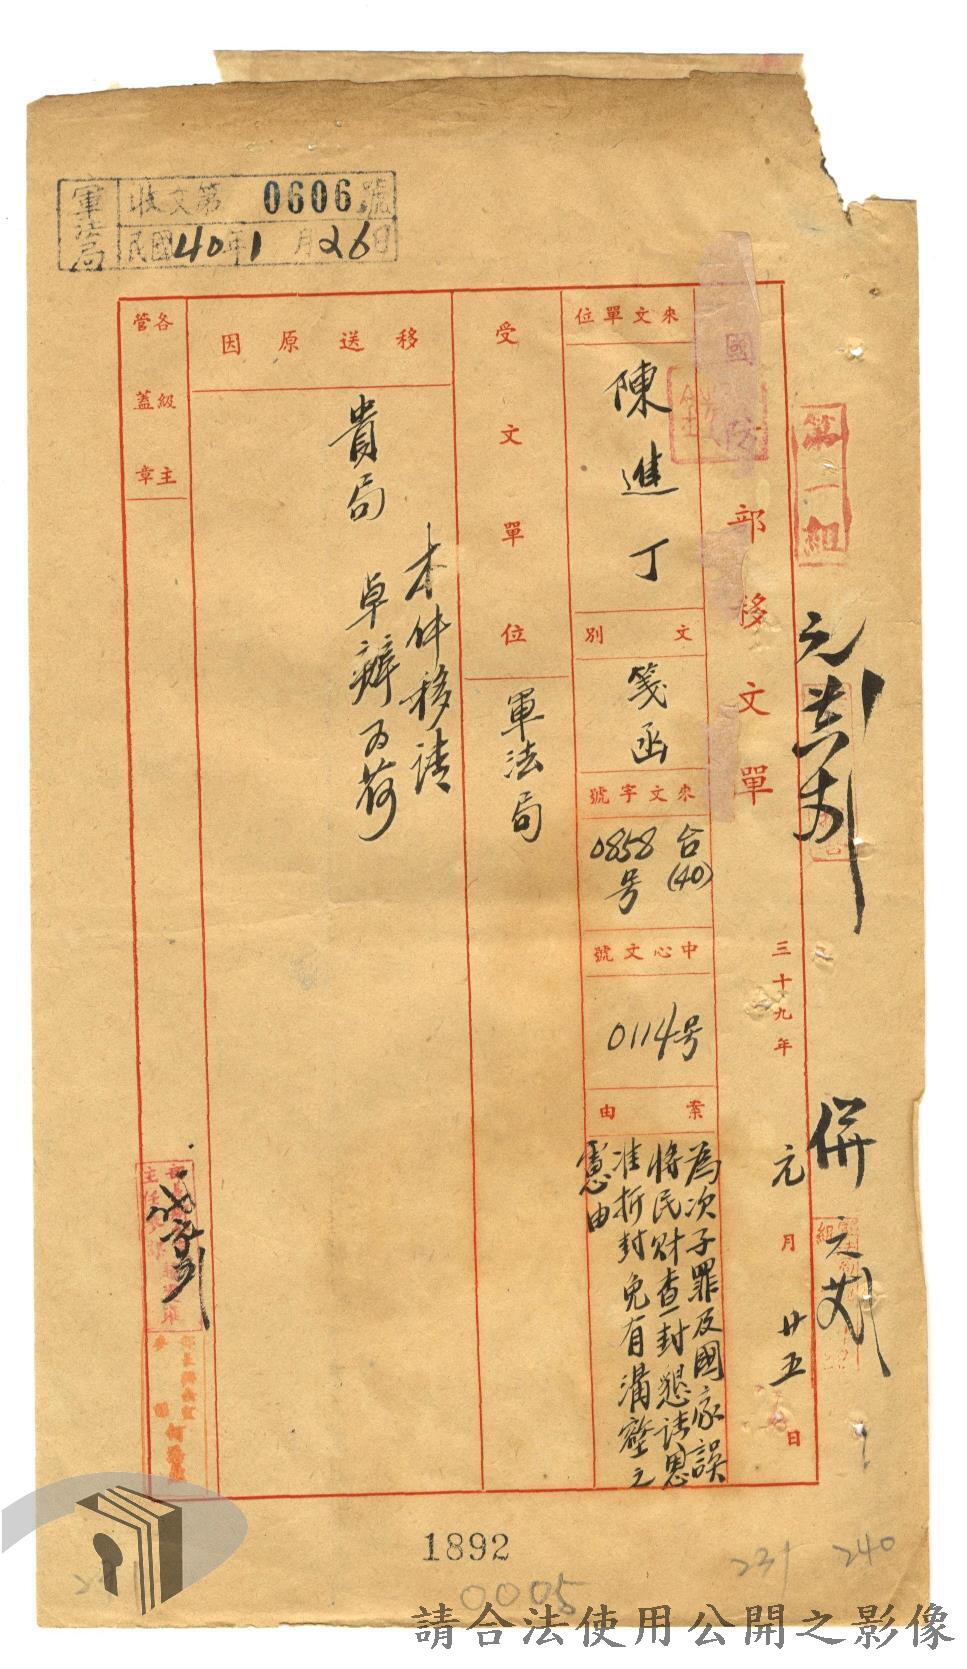 軍法局
收文第0606號
民國40年1月26日
第一組
國防部移文單
三十九年元月廿五日
併
來文單位
陳進丁
文別
箋函
來文字號
合(40)
0858号
中心文號
0114号
案由
為次子罪及國家誤
將民財查封懇請恩
准折封免有溝壑之
憲由
受文單位
軍法局
移送原因
本件移請
貴局 卓辦為荷
各級主管蓋章
1892
0005
231
240
請合法使用公開之影像